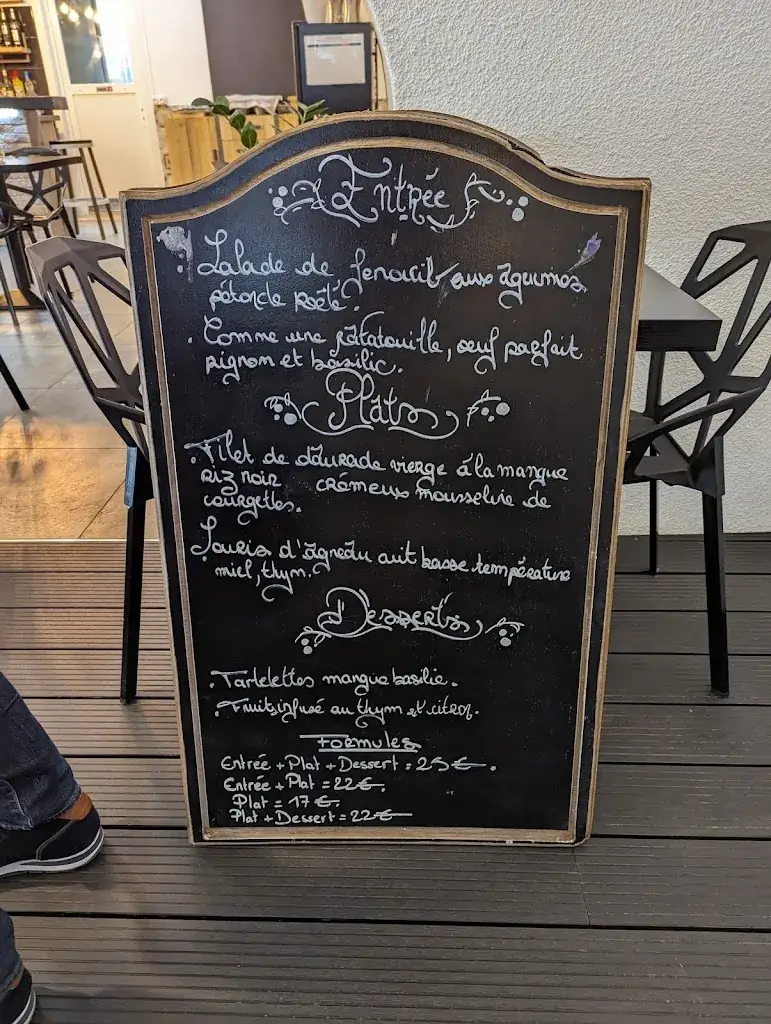 Entrée
. Salade de fenouil aux agrumes
pétoncle roété.
. Comme une ratatouille, oeuf parfait
pignon et basilic.
Plats
. Filet de daurade vierge à la mangue
riz noir crémeux mousseline de
courgettes.
Souris d'agneau cuit basse température
miel, thym.
Desserts
. Tartelettes mangue basilic.
. Fruits infusé au thym et citron.
Formules
Entrée + Plat + Dessert = 25€.
Entrée + Plat = 22€.
Plat = 17€.
Plat + Dessert = 22€